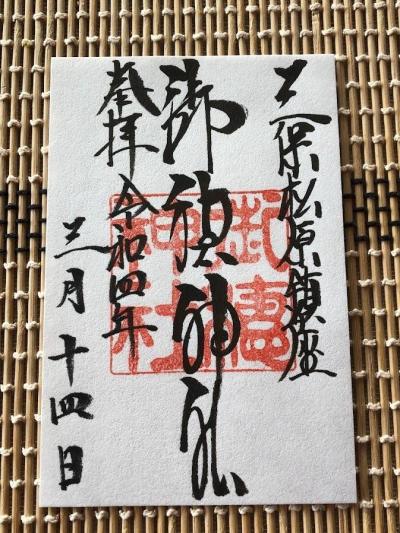 三保松原鎮座
御穂神社
御穗神社
奉拝 令和四年
三月十四日